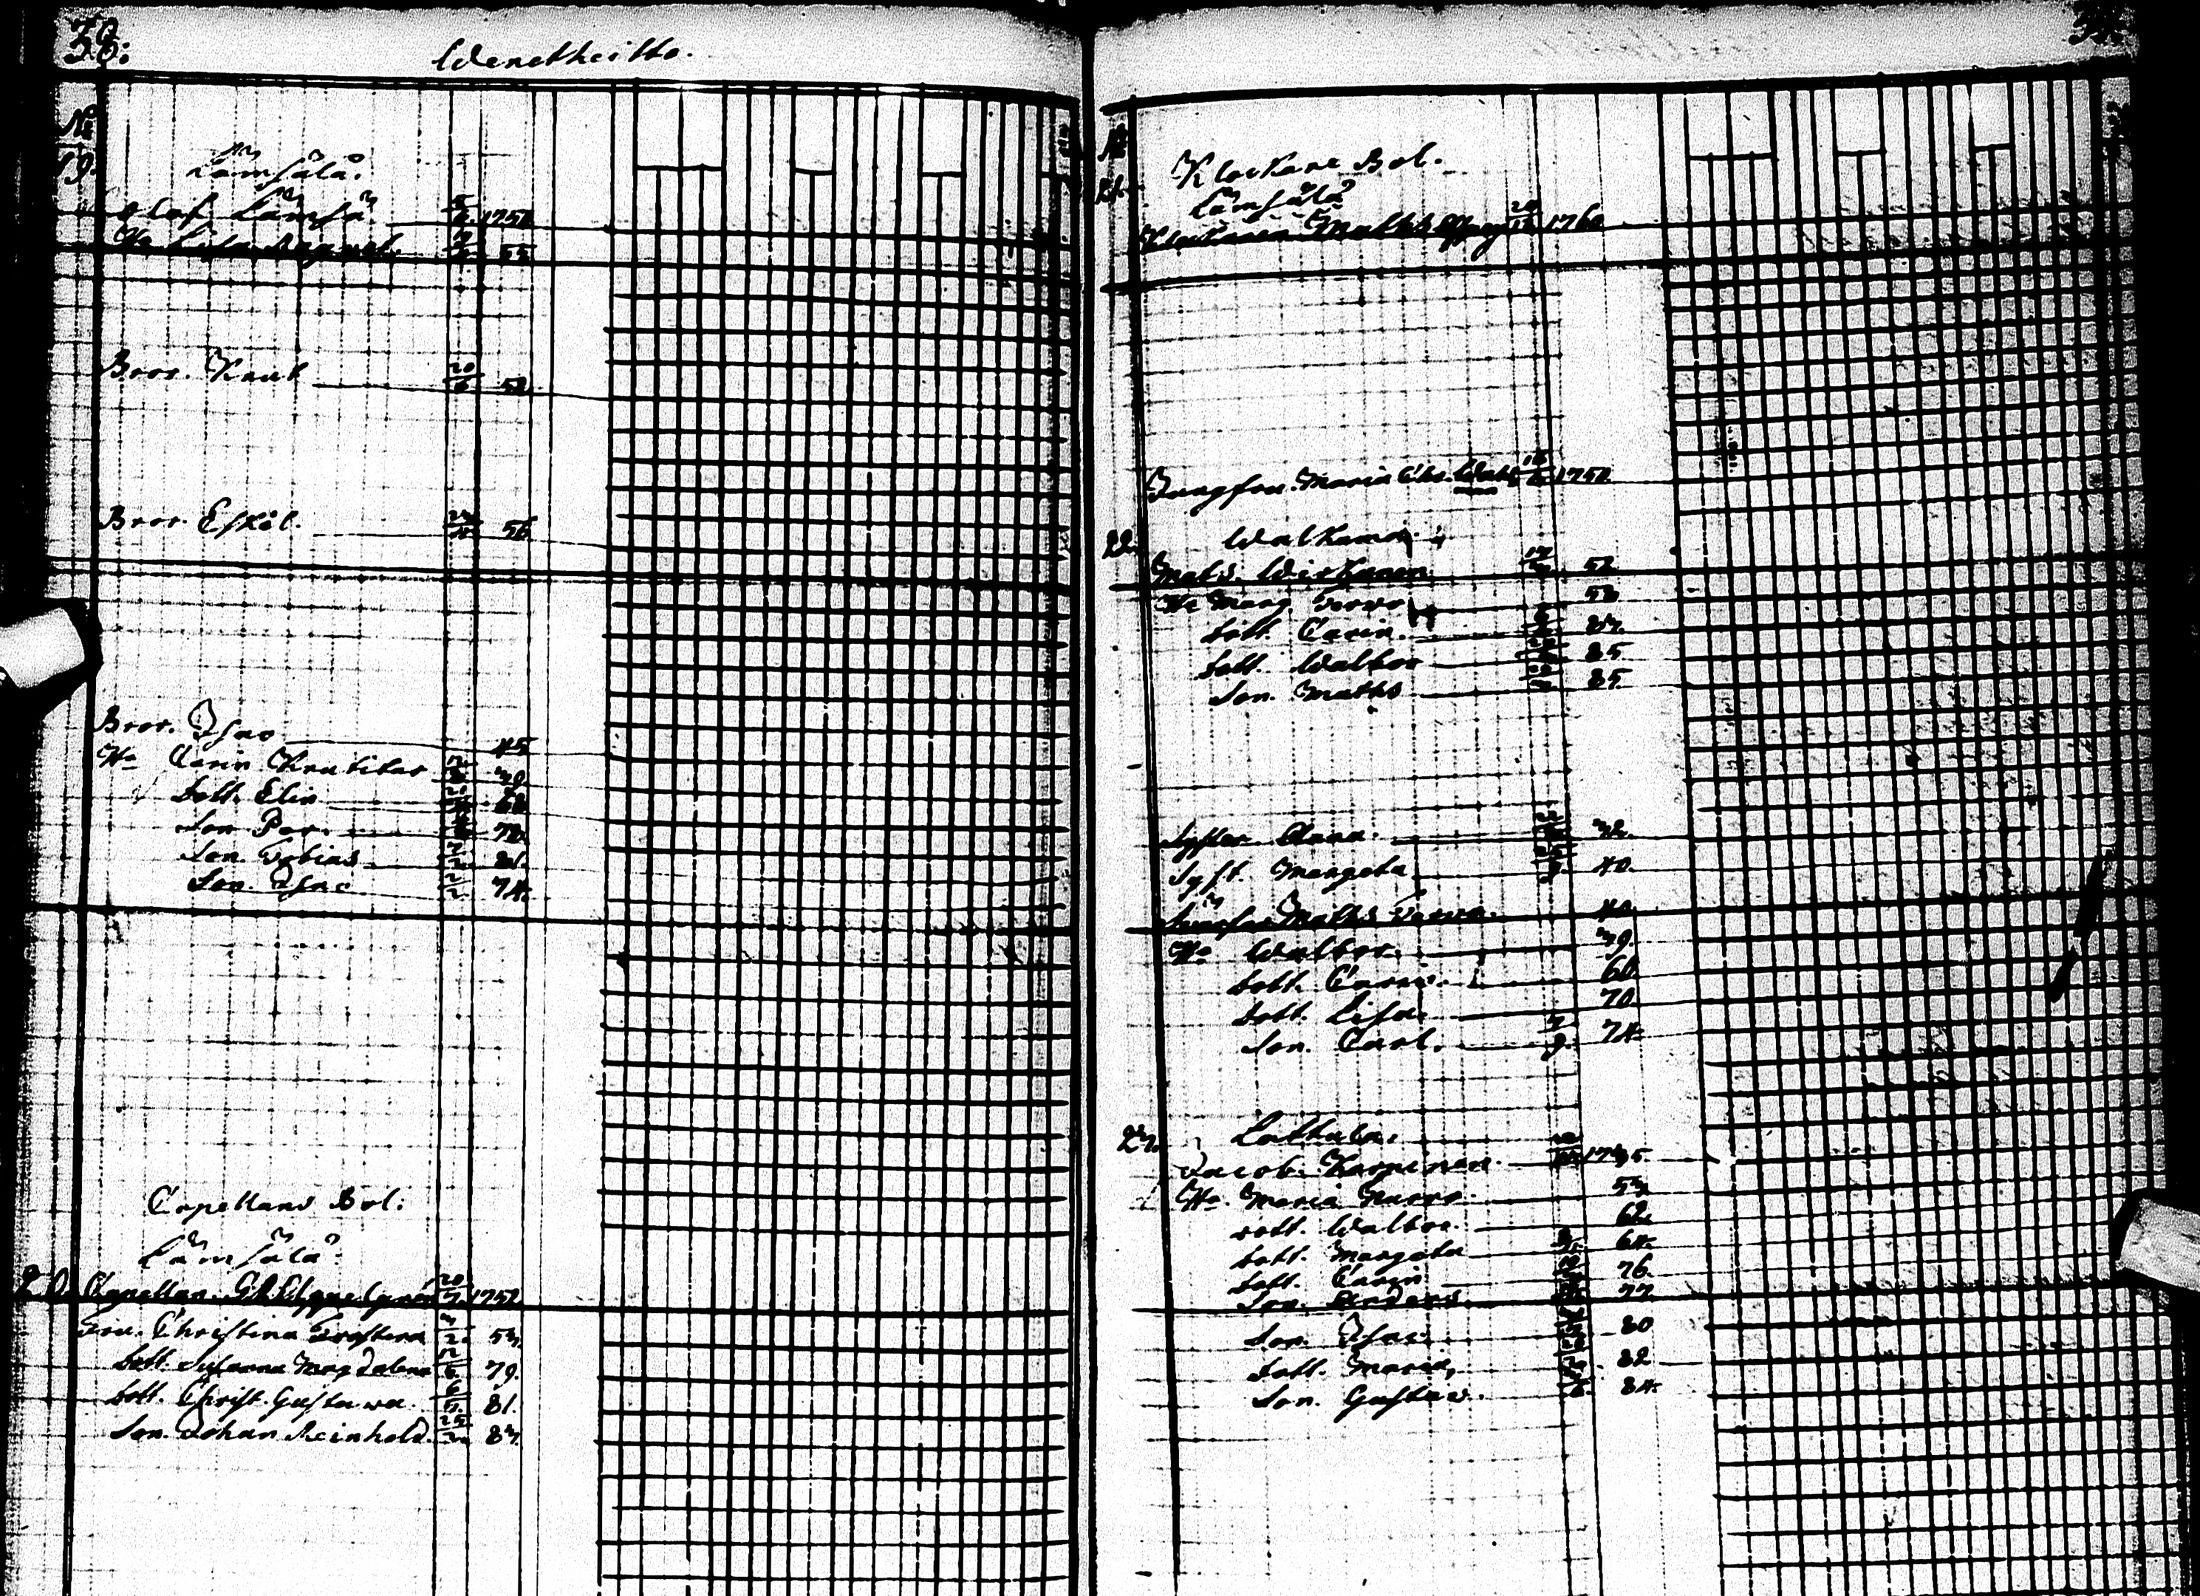 38.
Wenetheitto.
No
19.
Lämsälä.
Olof Lämsä 1750
Hu Lisa 55
Bror. Knut 20/6 52
Bror. Eskil. 56
Bror. Isac 45
Hu Carin 39
dott. Elin 68
Son Per. 72.
Son. Tobias 81.
Son. Isac 2/2 74.
Capellans Bol.
Lämsälä.
20. Capellan 20/7 1752
Fru. Christina 53.
dott. Susanna Magdalena 12/6 79.
dott. Christ. Gustava 6/5 81.
Son. Johan Reinhold. 25/3 83.
No
21.
Klockare Bol.
Lämsälä
Klockaren Maths 1760
Jungfru. Maria Chr. 1750.
22. Walkama
Mats. Wirkanen 52
Hu Marg. Torvo 53
dott. Carin. 83.
dott. Walbor 85
Son. Maths 85
Syster Anna. 32.
Syst. Margeta 40.
Maths Torvo. 40
Hu Walbor. 39.
dott. Carin. 68
dott. Lisa. 70
Son. Carl. 7/9. 74.
23. Lattula.
Jacob. Karpinen 1735.
Hu. Maria 53
dott. Walbor. 62.
dott. Margeta 64.
dott. Carin 76.
Son. Anders 77.
Son. Isac 80
dott. Maria, 82
Son. Gustav. 84.